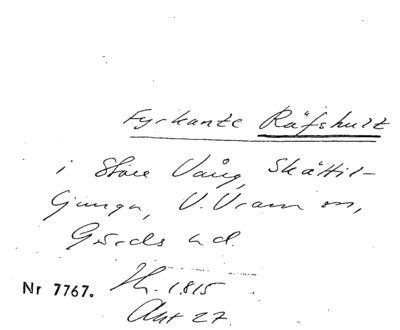 Fyrkante Räfshult
i Store Vång, Skättil-
ljunga, V. Vram sn,
Gärds hd.
Nr 7767. Hs. 1815
Akt 27